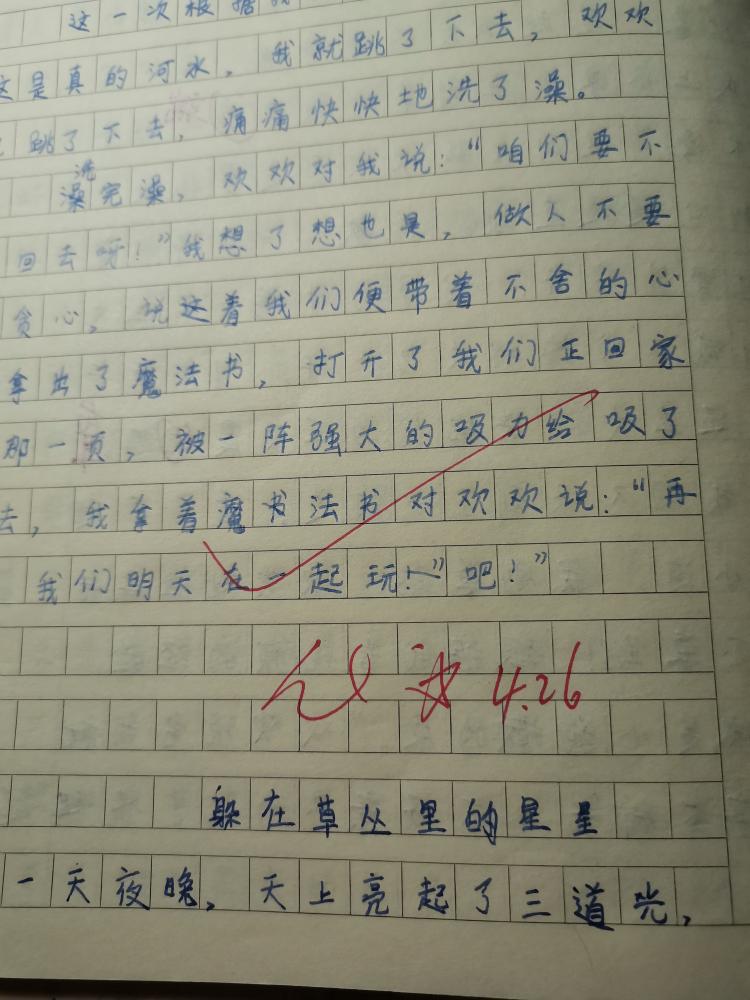 这一次根据我
这是真的河水，我就跳了下去，欢欢
跳了下去，痛痛快快地洗了澡。
洗
澡完澡，欢欢对我说：“咱们要不
回去呀！”我想了想也是，做人不要
贪心，说这着我们便带着不舍的心
拿出了魔法书，打开了我们正回家
那一页，被一阵强大的吸力给吸了
去，我拿着魔书法书对欢欢说：“再
我们明天在一起玩！”吧！”
4.26
躲在草丛里的星星
一天夜晚，天上亮起了三道光，